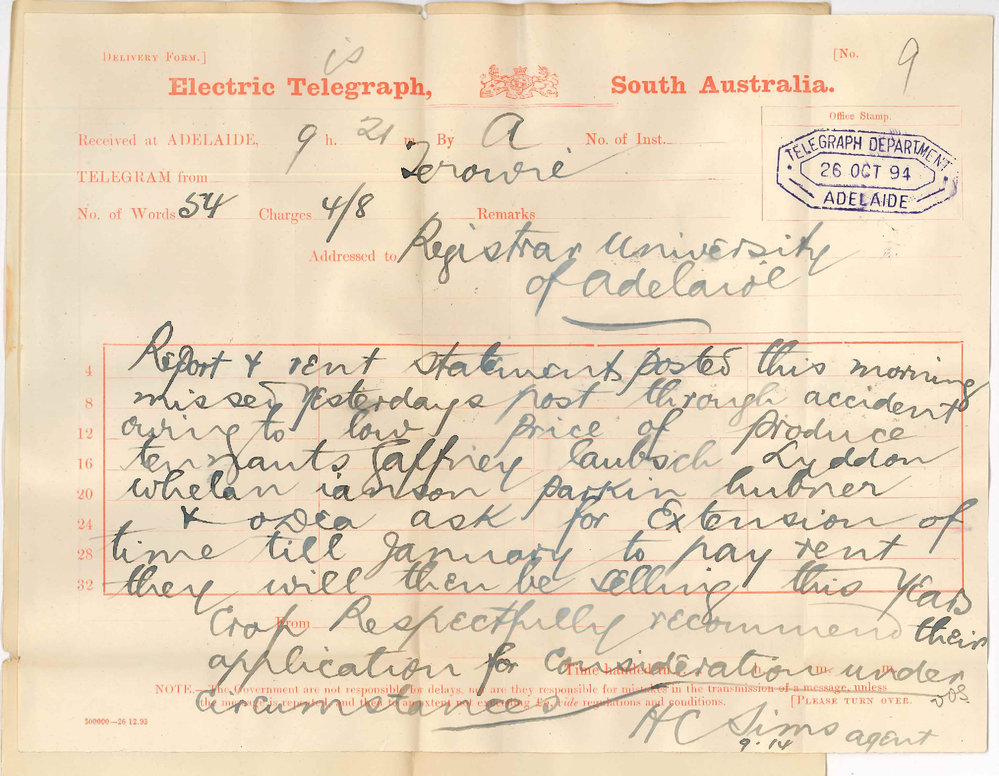 DELIVERY FORM.]
is
[No. 9
Electric Telegraph, South Australia.
Office Stamp.
Received at ADELAIDE, 9 h. 21 m. By A No. of Inst.
TELEGRAPH DEPARTMENT
26 OCT 94
ADELAIDE
TELEGRAM from Terowie
No. of Words 54 Charges 4/8 Remarks
Addressed to Registrar University
of Adelaide
Report & rent statements posted this morning
4
missed yesterdays post through accident
8
owing to low price of produce
12
tennants Gaffney Laubsch Lyddon
16
whelan ianson parkin hubner
20
& odea ask for Extension of
24
time till January to pay rent
28
they will then be selling this years
32
From
Crop Respectfully recommend their
application for Consideration under
Time handed in h. m. m.
Circumstances
NOTE.—The Government are not responsible for delays, nor are they responsible for mistakes in the transmission of a message, unless
the message is repeated, and then to an extent not exceeding £5, vide regulations and conditions.
[PLEASE TURN OVER.
500000—26 12.93
H C Sims agent
9.14